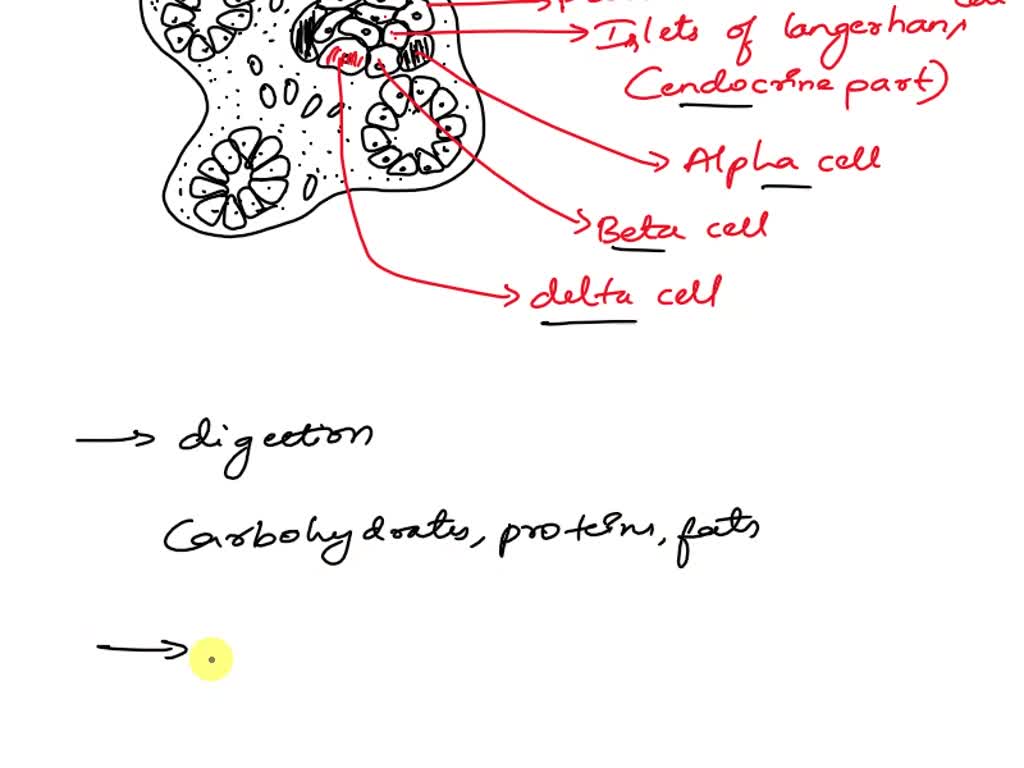 Islets of langerhans
(endocrine part)
Alpha cell
Beta cell
delta cell
digestion
Carbohydrates, proteins, fats